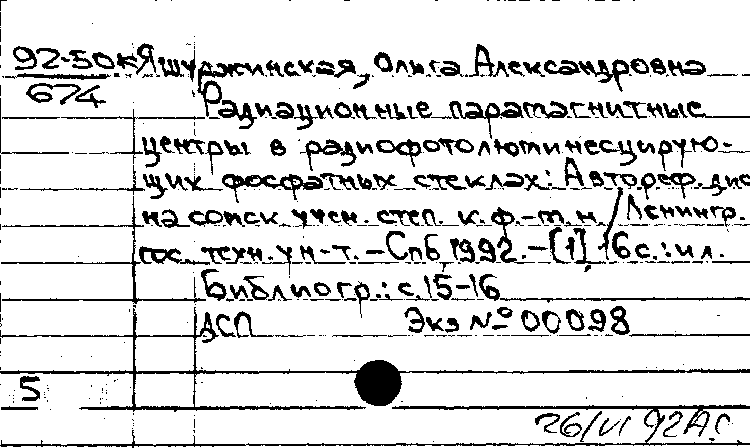 92-50к Яшуржинская, Ольга Александровна
674 Радиационные парамагнитные
центры в радиофотолюминесцирую-
щих фосфатных стеклах: Автореф. дис
на соиск. учен. степ. к. ф.-м. н. / Ленингр.
гос. техн. ун-т. - Спб, 1992. - [1], 16 с. : ил.
Библиогр.: с. 15-16
ДСП Экз № 00098
5
26/VI 92